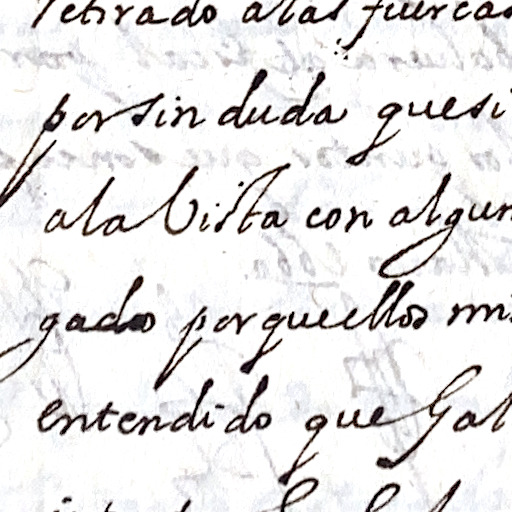 retirado alas fuercas
por sin duda que si
ala Vista con algun
gado porque ellos mi
entendido que Gal